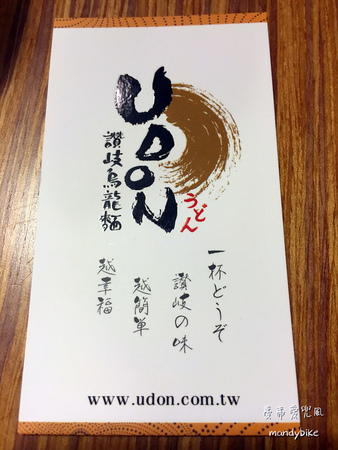 UDON
うどん
讚岐烏龍麵
一杯どうぞ
讃岐の味
越簡單
越幸福
www.udon.com.tw
mandybike